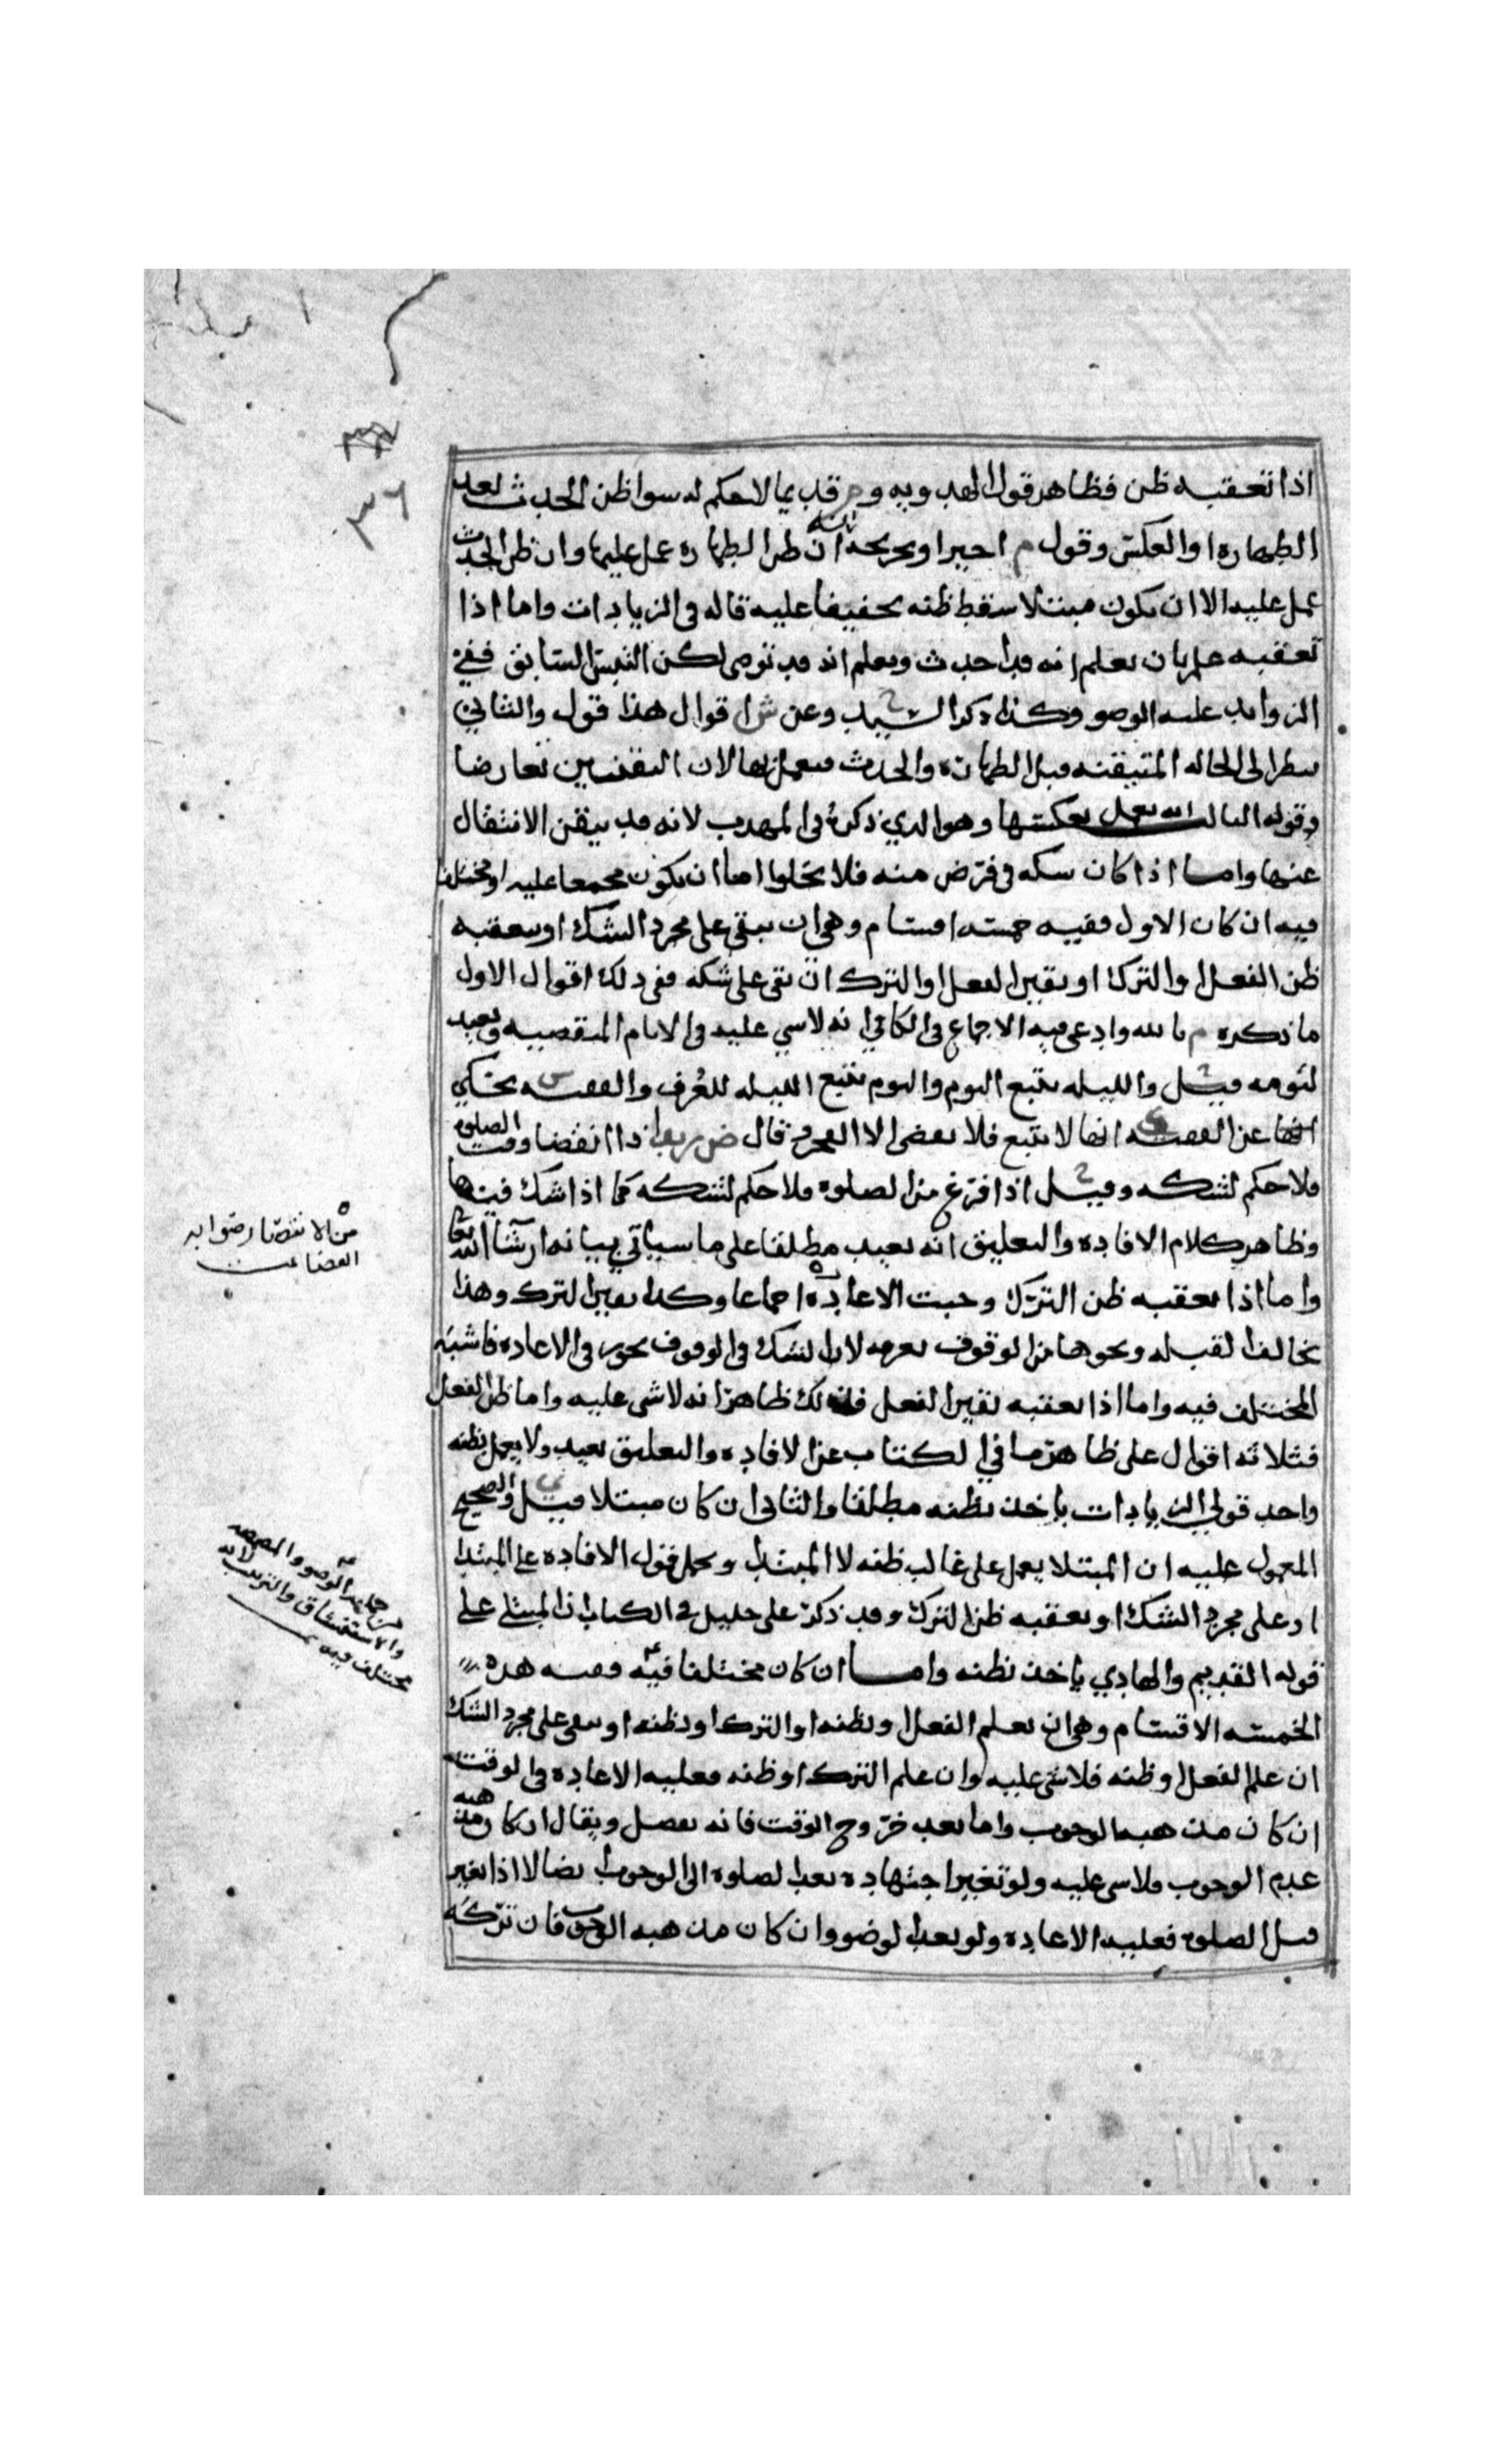 ٣٦
اذا تعقبه ظن فظاهر قول الهدويه و قديما لا حكم له سوا ظن الحدث بعد
الطهاره او العكس وقول م اخيرا وتخريجه انه ان ظن الطهاره عمل عليها وان ظن الحدث
عمل عليه الا ان يكون مبتلا سقط ظنه تخفيفا عليه قاله في الزيادات واما اذا
تعقبه علم بان يعلم انه قد احدث ويعلم انه قد توضى لكن التبس السابق ففي
الزوايد عليه الوضو وكذا ذكر السيد ح وعن ش اقوال هذا قول والثاني
ينظر الى الحاله المتيقنه قبل الطهاره والحدث فيعمل بها لان اليقينين تعارضا
وقوله الثالث انه يعمل بعكسها وهو الذي ذكره في المهذب لانه قد تيقن الانتقال
عنها واما اذا كان شكه في فرض منه فلا يخلوا اما ان يكون مجمعا عليه او مختلفا
فيه ان كان الاول ففيه خمسه اقسام وهي ان يبقى على مجرد الشك او يتعقبه
ظن الفعل او الترك او يقين الفعل او الترك ان بقى على شكه ففي ذلك اقوال الاول
ما ذكره م بالله وادعى فيه الاجماع في الكافي انه لا شي عليه في الايام المنقضيه ويعيد
ليومه قيل ح والليله تتبع اليوم واليوم يتبع الليله للعرف والفقيه س يحكي
عن الفقيه ى انها لا تتبع فلا يقضى الا الفجر قال ض اذا انقضا وقت الصلوه
فلا حكم لشكه وقيل ح اذا فرغ من الصلوه فلا حكم لشكه كما اذا شك فيها
وظاهر كلام الافاده والتعليق انه يعيد مطلقا على ما سياتي بيانه ان شا الله تعا
واما اذا تعقبه ظن الترك وجبت الاعاده اجماعا وكذا يقين الترك وهذا
بخالف القبله ونحوها من الوقوف بعرفه لان الشك في الوقوف يجوز في الاعاده فاشبه
المختلف فيه واما اذا تعقبه يقين الفعل فذلك ظاهر انه لا شى عليه واما ظن الفعل
فثلاثه اقوال على ظاهر ما في الكتاب عن الافاده والتعليق يعيد ولا يعمل بظنه
واحد قولي الزيادات ياخذ بظنه مطلقا والثاني ان كان مبتلا قيل ي والصحيح
المعمول عليه ان المبتلا يعمل على غالب ظنه لا المبتدا ويحمل قول الافاده على المبتدا
او على مجرد الشك او تعقبه ظن الترك وقد ذكر على خليل في الكتاب ان المبتلى على
قوله القديم والهادي ياخذ بظنه واما ان كان مختلفا فيه ففيه هذه
الخمسه الاقسام وهي ان يعلم الفعل او يظنه او الترك او يظنه او يبقى على مجرد الشك
ان علم الفعل او ظنه فلا شى عليه وان علم الترك او ظنه فعليه الاعاده في الوقت
ان كان مذهبه الوجوب واما بعد خروج الوقت فانه يفصل ويقال ان كان مذهبه
عدم الوجوب فلا شى عليه ولو تغير اجتهاده بعد الصلوه الى الوجوب ايضا الا اذا تغير
قبل الصلوه فعليه الاعاده ولو بعد الوضو وان كان مذهبه الوجوب فان تركه
من الانتصار
من جملة الوضوء والمضمضه
والاستنشاق والترتيب لانه
مختلف فيه